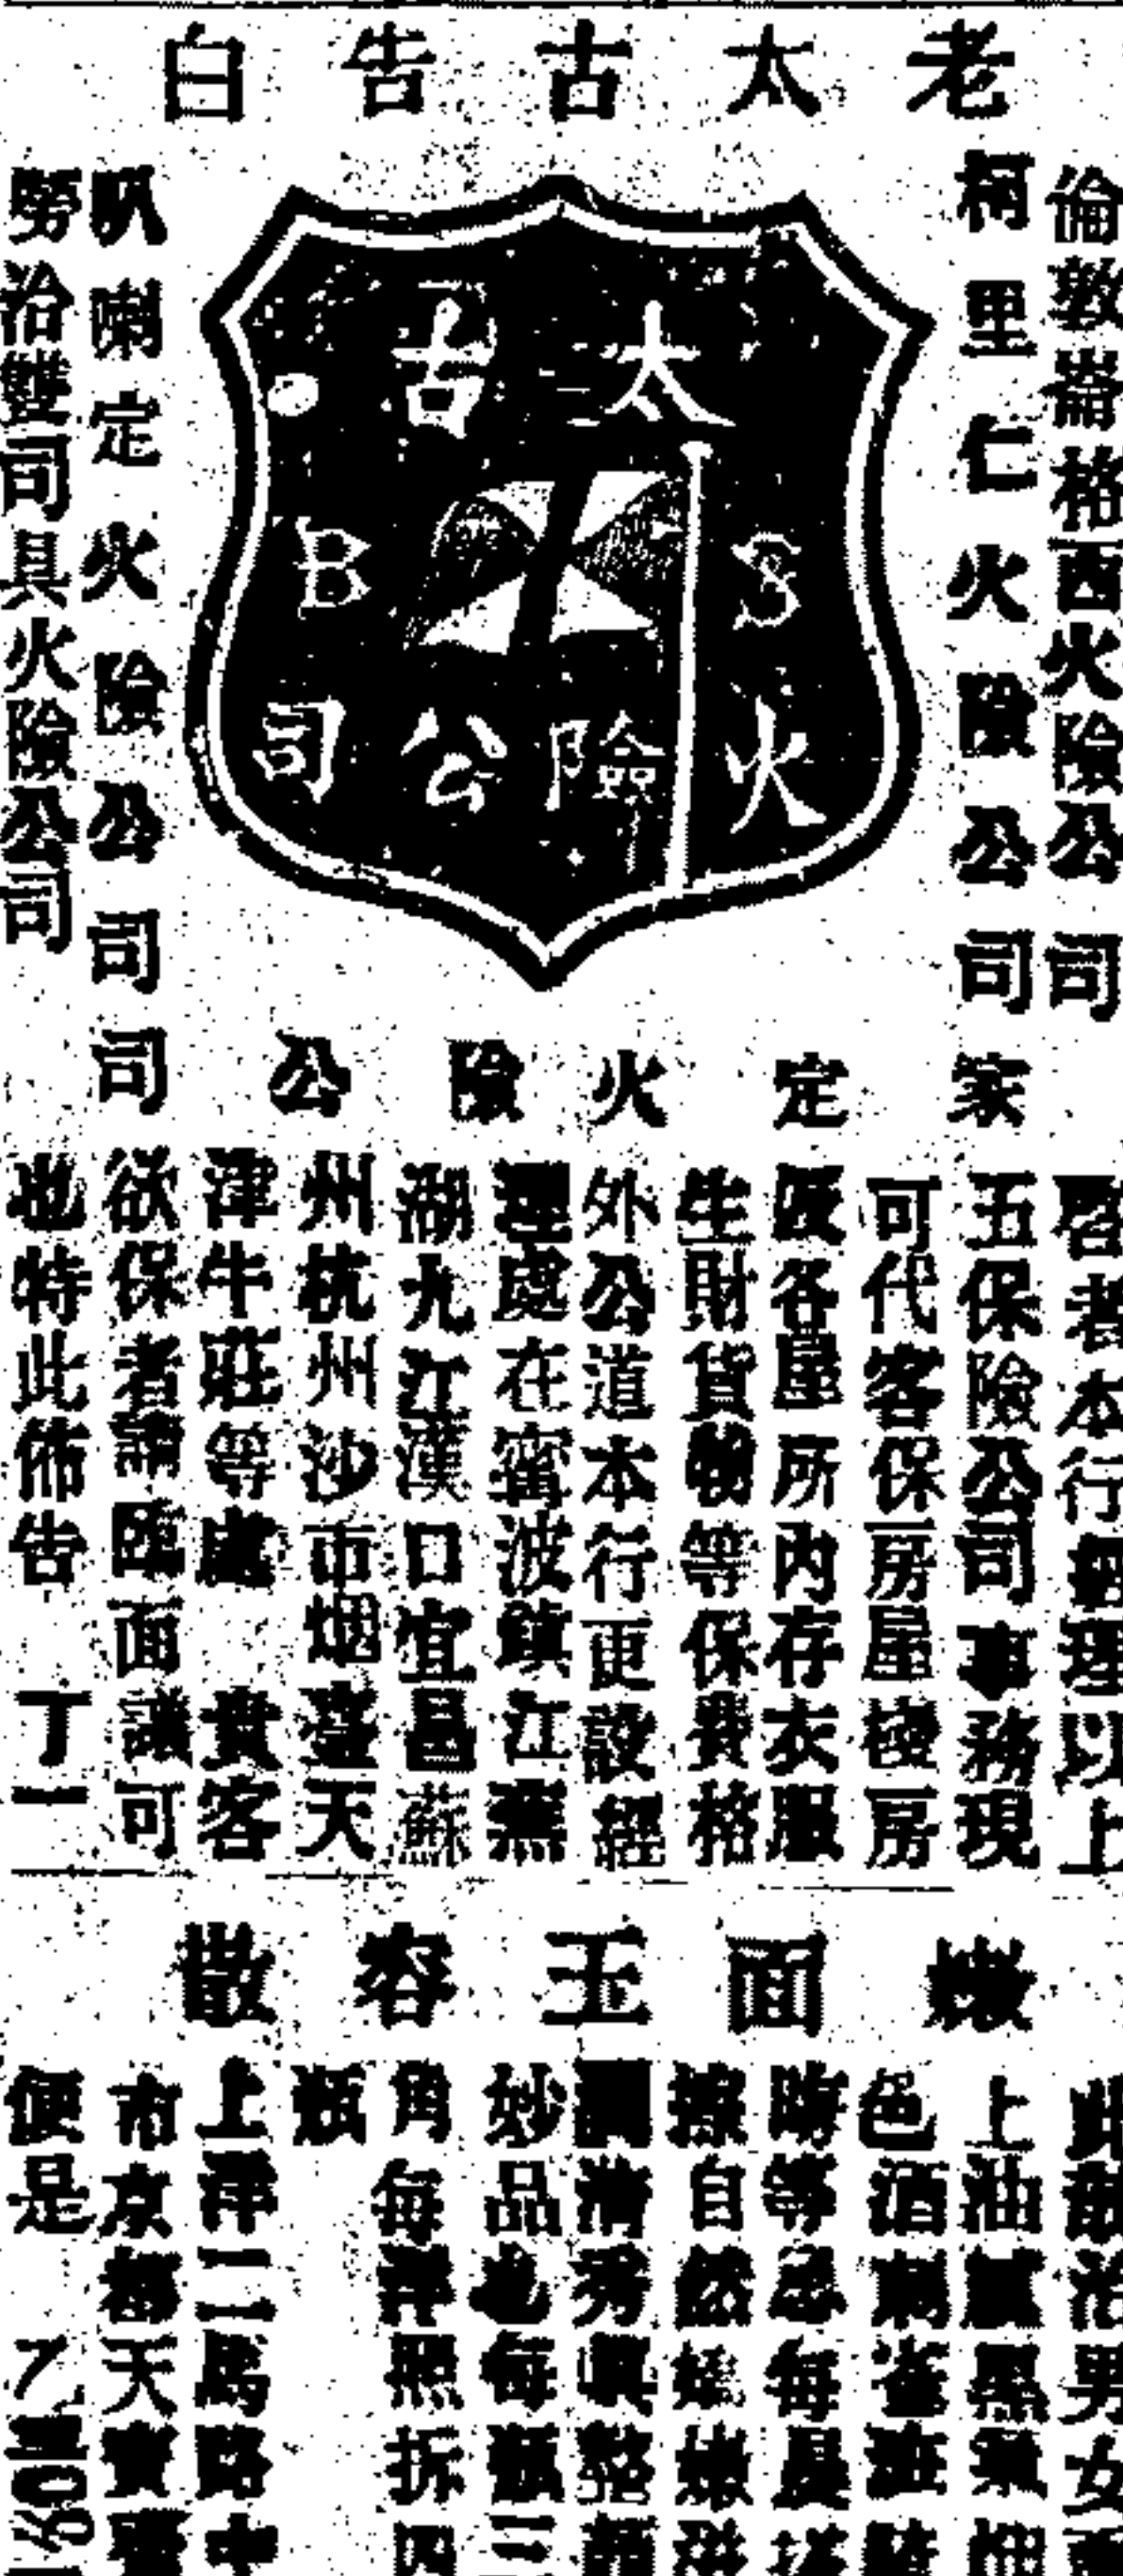 老太古告白
倫敦崙格西火險公司
柯里仁火險公司
太古
S B
火險公司
叭喇定火險公司
勞洽雙司具火險公司
家定火險公司
啓者本行經理以上
五保險公司事務現
可代客保房屋棧房
及各屋所內存衣服
生財貨物等保費格
外公道本行更設經
理處在甯波鎮江蕪
湖九江漢口宜昌蘇
州杭州沙市烟臺天
津牛莊等處 貴客
欲保者請臨面議可
也特此佈告 丁一
嫩面玉容散
此散治男女
上油膩黑
色酒刺雀斑
時等 每晨
擦自然嬌嫩
清秀
妙品也每瓶三
角每洋照拆四
瓶
上洋二馬路中
市京都天寶
便是